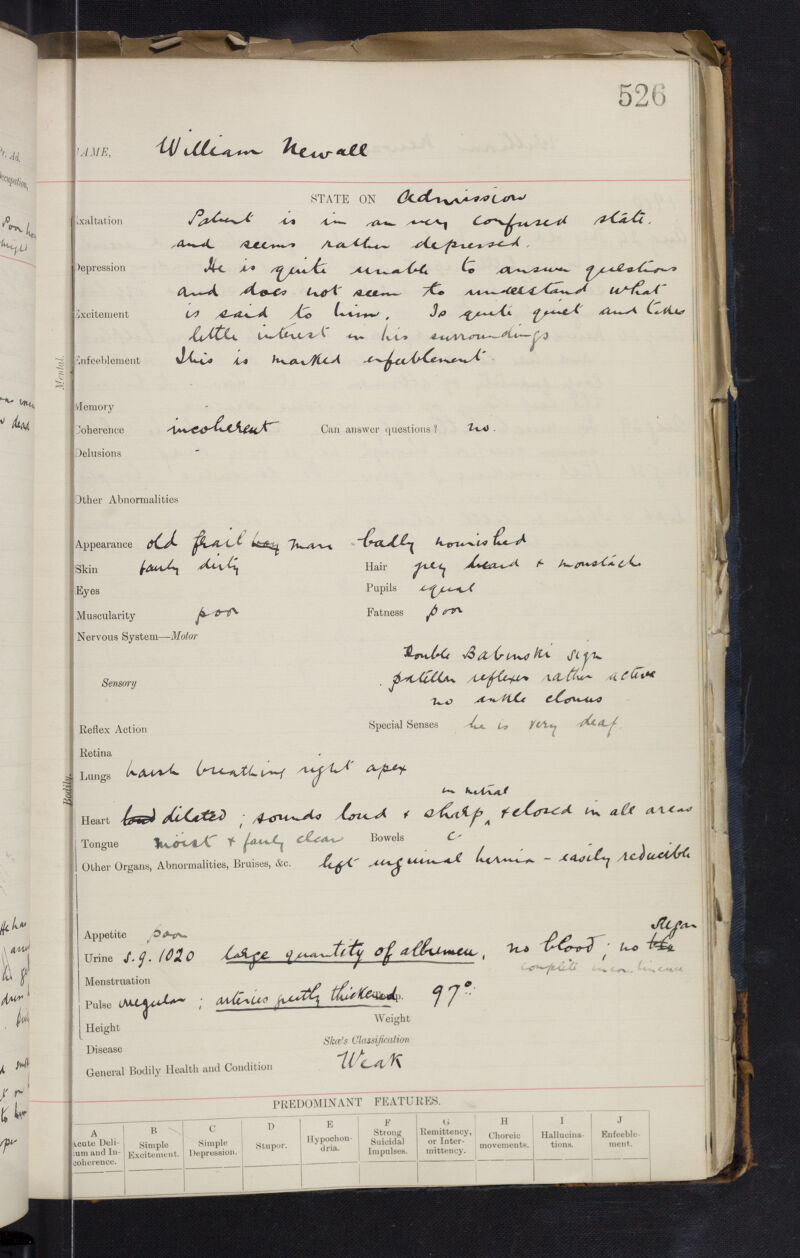 526
NAME, William Newall
STATE ON Admission
Exaltation Patient is in an very confused state.
and seems rather depressed.
Depression He is quite unable to answer questions
and does not seem to understand what
Excitement is said to him. Is quite quiet and takes
little interest in his surroundings
Enfeeblement This is marked enfeeblement.
Mental.
Memory -
Coherence incoherent Can answer questions? no.
Delusions -
Other Abnormalities
Appearance old frail man - badly nourished
Skin fairly dirty Hair grey beard & moustache
Eyes Pupils equal
Muscularity poor Fatness poor
Nervous System—Motor
Double Babinski sign
Sensory patellar reflexes rather active
no ankle clonus
Reflex Action Special Senses he is very deaf.
Retina
Bodily.
Lungs harsh breathing right apex
in mitral
Heart loud dilated; sounds loud & sharp, & closed in all areas
Tongue moist & fairly clean Bowels c.
Other Organs, Abnormalities, Bruises, &c. left inguinal hernia - easily reducible
Appetite poor
Sugar
Urine s.g. 1020 large quantity of albumen, no blood; no
complete incontinence
Menstruation
Pulse irregular; arteries partly thickened. 97°.
Height Weight
Disease Skae's Classification
General Bodily Health and Condition Weak
PREDOMINANT FEATURES.
A B C D E F G H I J
Acute Delirium and Incoherence. Simple Excitement. Simple Depression. Stupor. Hypochondria. Strong Suicidal Impulses. Remittency, or Intermittency. Choreic movements. Hallucinations. Enfeeblement.